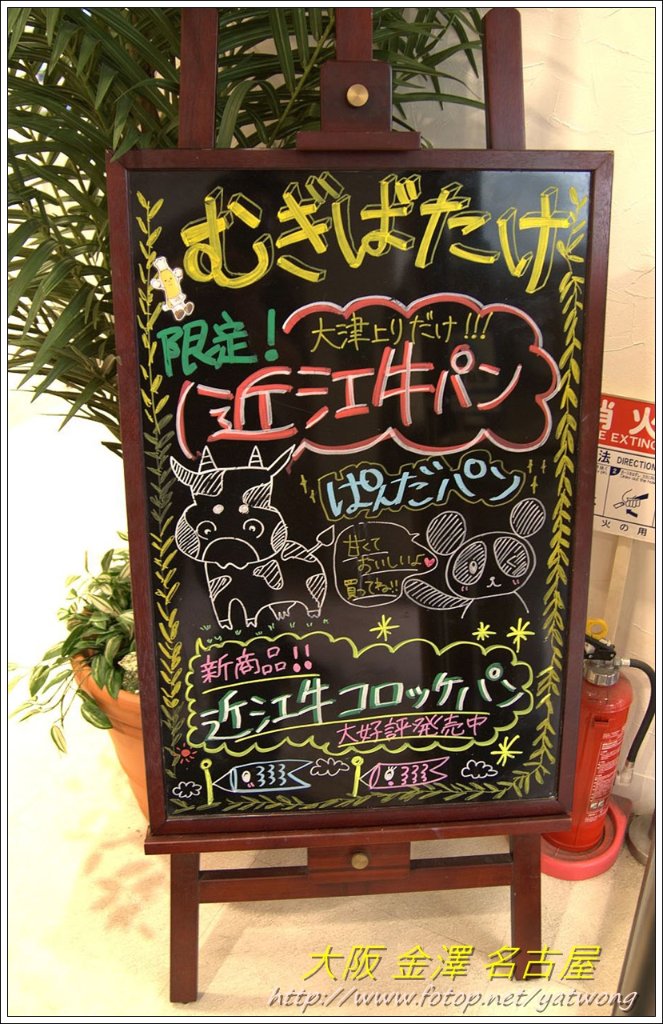 むぎばたけ
限定!
大津上りだけ!!!
近江牛パン
ぱんだパン
甘くて
おいしいよ
買ってね!!
新商品!!
近江牛コロッケパン
大好評発売中
消火
E EXTING
法 DIRECTION
火の用
大阪 金澤 名古屋
http://www.fotop.net/yatwong